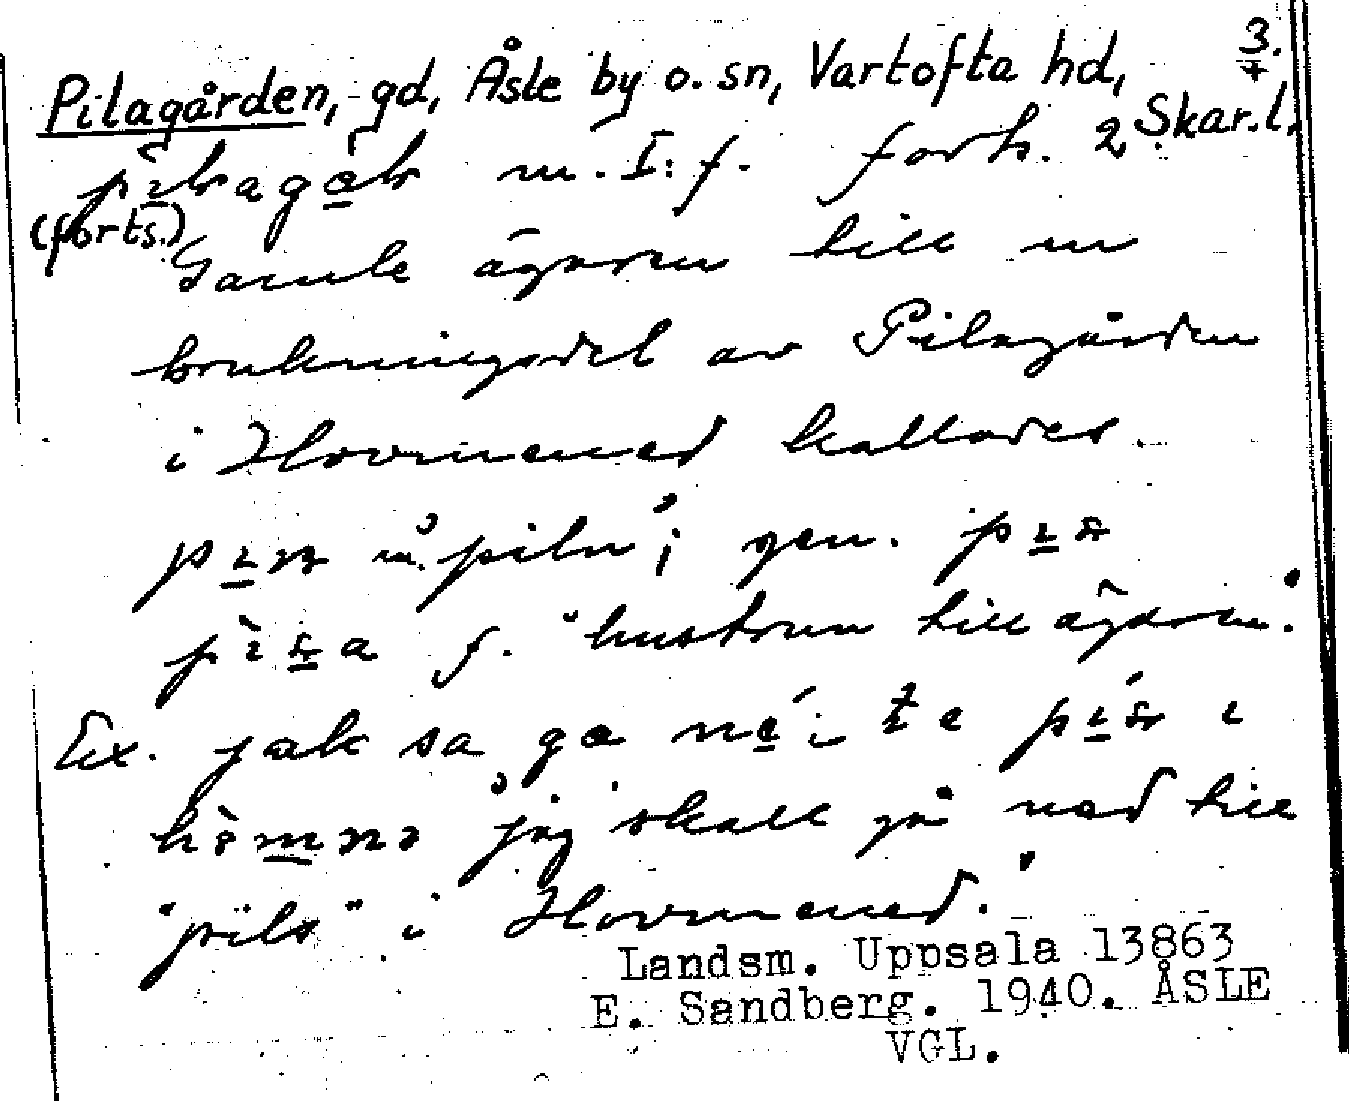 Pilagården, gd, Åsle by o. sn, Vartofta hd, 3.
Skar.l.
m. I: f. forts. 2
(forts.)
Gamle ägaren till en
brukningsdel av Pilagården
i Hovmened kallades
m. 'piln'; gen.
f. "hustrun till ägaren".
Ex. jak sa ga te i
'jag skall gå ned till
"pils" i Hovmened.'
Landsm. Uppsala 13863
E. Sandberg. 1940. ÅSLE
VGL.